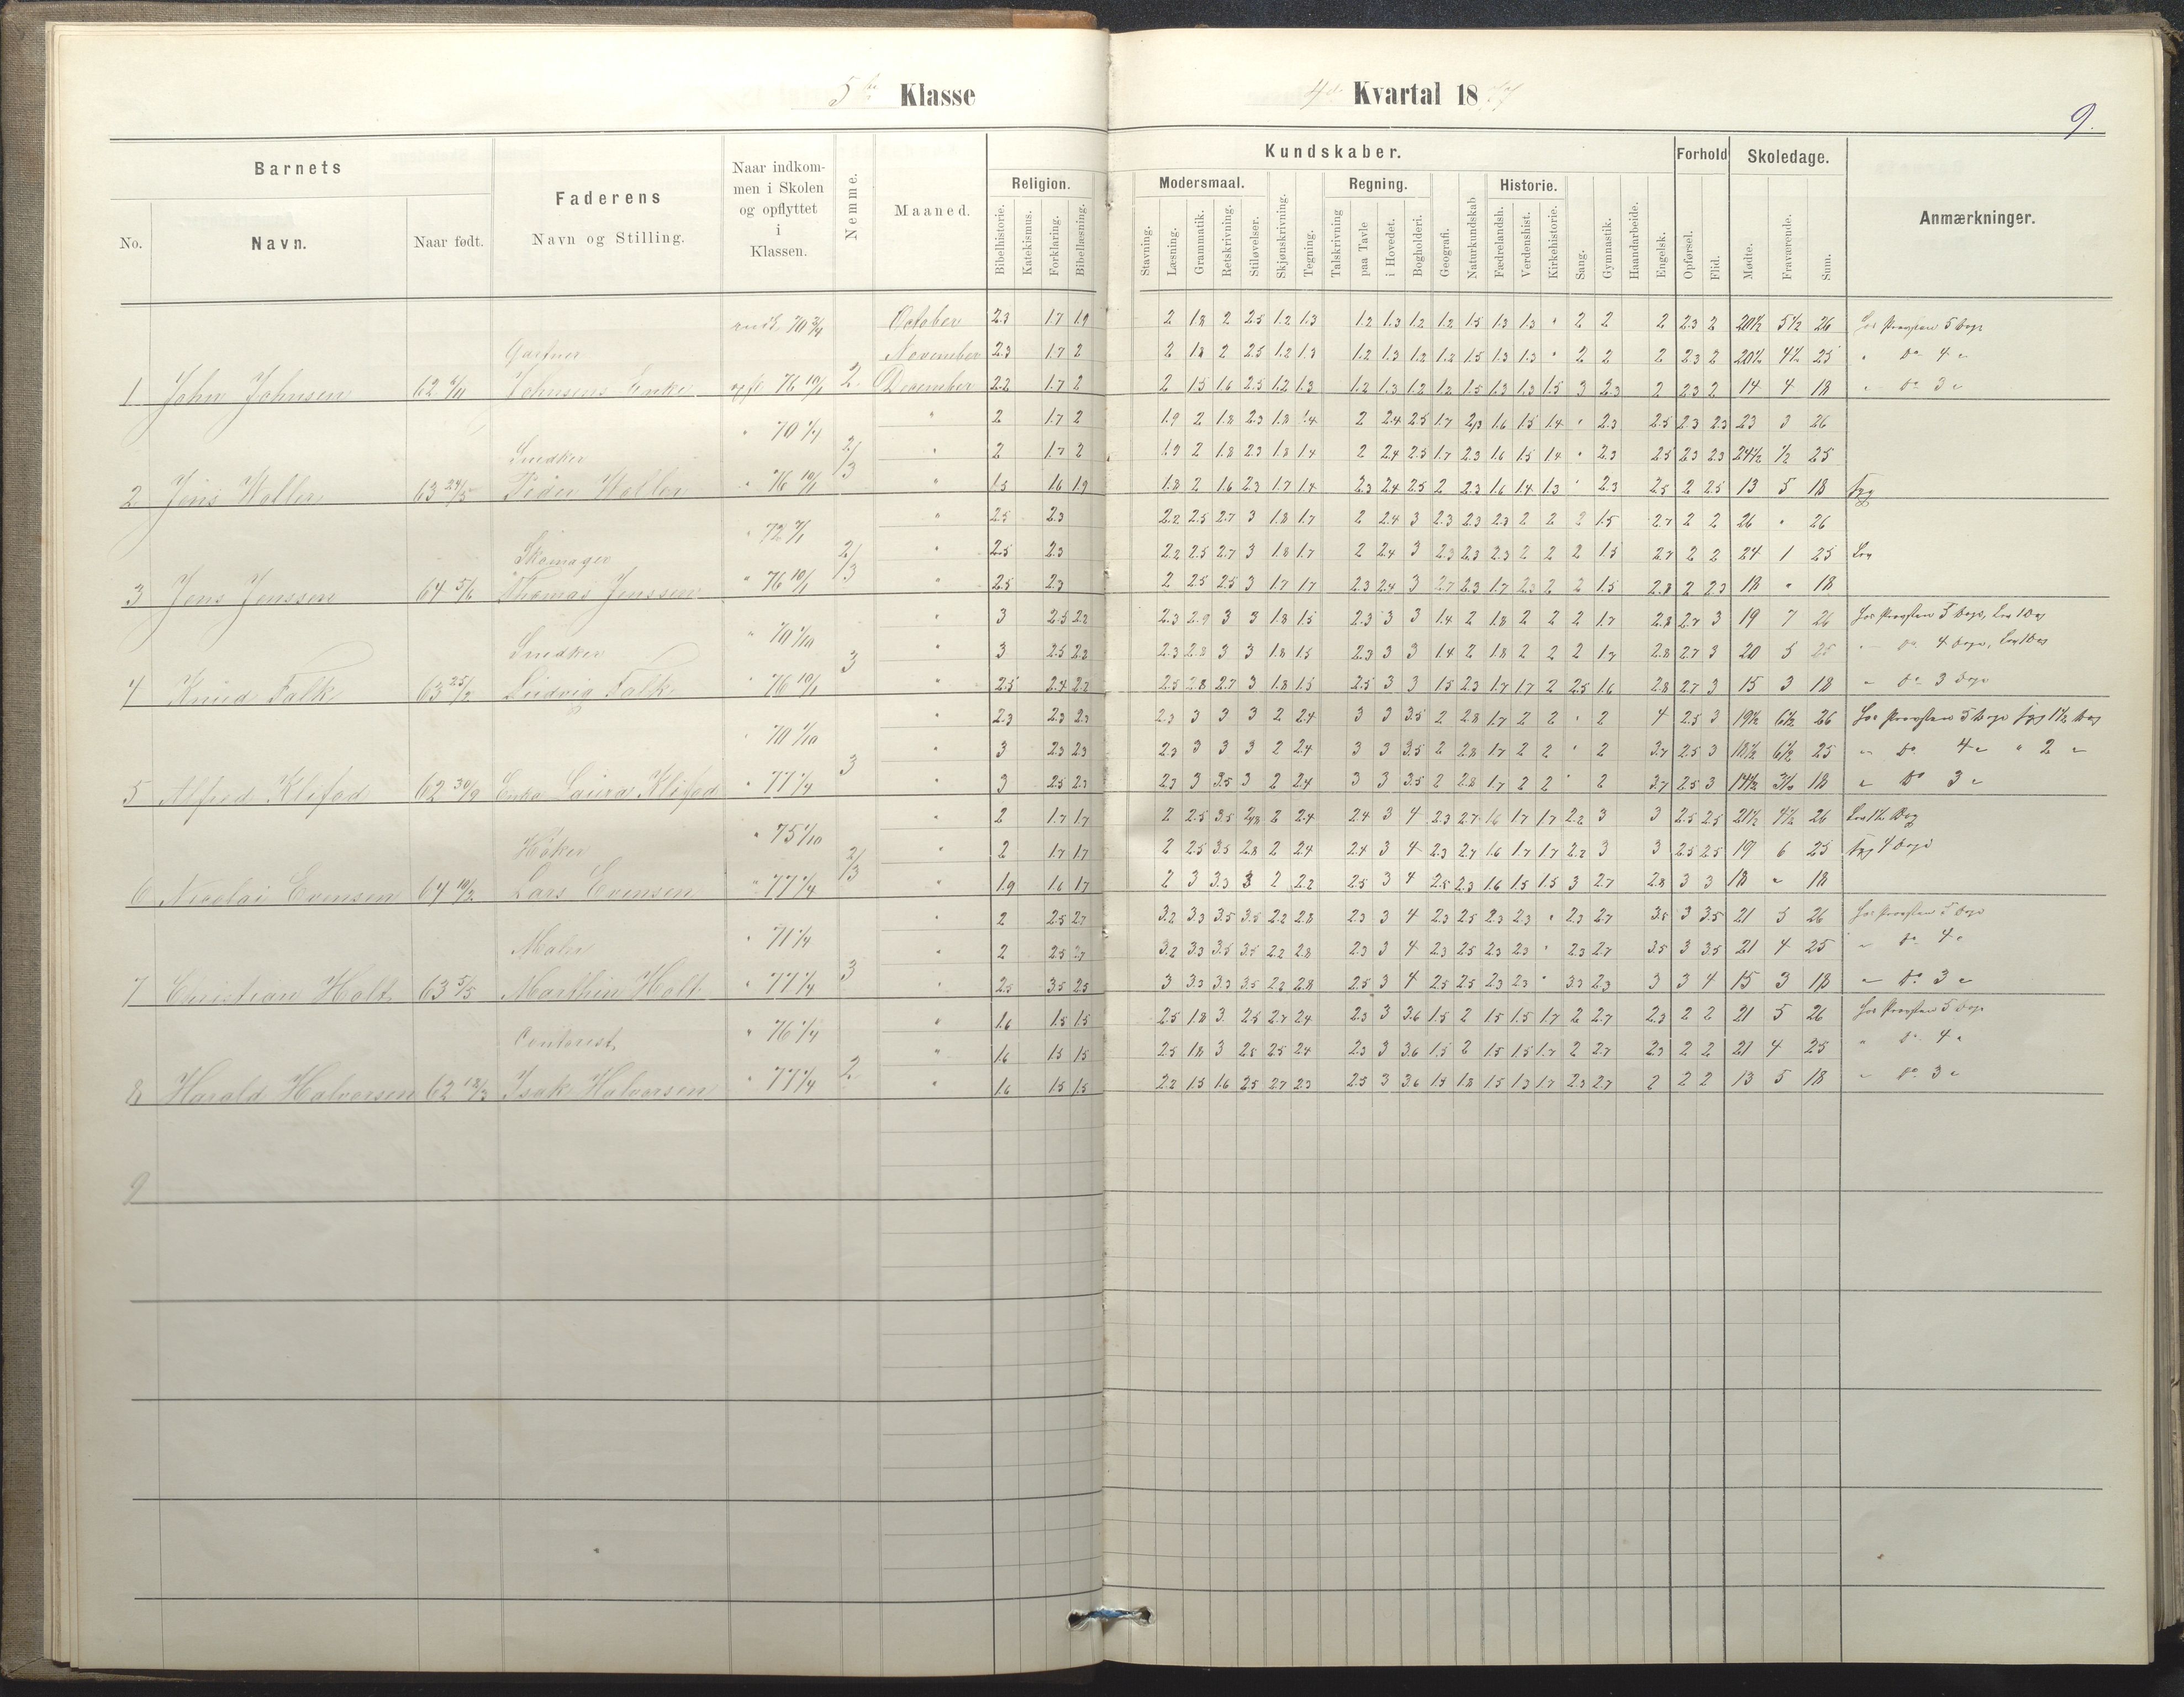 5te Klasse
4de Kvartal 1877
9.
Barnets
Faderens
Naar indkommen i Skolen og opflyttet i Klassen.
Nemme.
Maaned.
Kundskaber.
Forhold
Skoledage.
Anmærkninger.
No.
Navn.
Naar født.
Navn og Stilling.
Religion.
Modersmaal.
Regning.
Historie.
Bibelhistorie.
Katekismus.
Forklaring.
Bibellæsning.
Stavning.
Læsning.
Grammatik.
Retskrivning.
Stiløvelser.
Skjønskrivning.
Tegning.
Talskrivning
paa Tavle
i Hovedet.
Bogholderi.
Geografi.
Naturkundskab
Fædrelandsh.
Verdenshist.
Kirkehistorie.
Sang.
Gymnastik.
Haandarbeide.
Engelsk.
Opførsel.
Flid.
Mødte.
Fraværende.
Sum.
October 2.3 1.7 1.9 2 1.8 2 2.5 1.2 1.3 1.2 1.3 1.2 1.2 1.5 1.3 1.3 " 2 2 2 2.3 2 20½ 5½ 26
Gartner November 2.3 1.7 2 2 1.8 2 2.5 1.2 1.3 1.2 1.3 1.2 1.2 1.5 1.3 1.3 " 2 2 2 2.3 2 20½ 4½ 25 " do 4 "
1 John Johnsen Johnsens Enke 76 10/1 2 December 2.2 1.7 2 2 1.5 1.6 2.5 1.2 1.3 1.2 1.3 1.2 1.2 1.5 1.3 1.3 1.5 3 2.3 2 2.3 2 14 4 18 " do 3 "
" 2 1.7 2 1.9 2 1.8 2.3 1.8 1.4 2 2.4 2.5 1.7 2.3 1.6 1.5 1.4 " 2.3 2.5 2.3 2.3 23 3 26
Snedker 2/3 " 2 1.7 2 1.9 2 1.8 2.3 1.8 1.4 2 2.4 2.5 1.7 2.3 1.6 1.5 1.4 " 2.3 2.5 2.3 2.3 24½ ½ 25
2 Jens Woller 63 24/5 Peder Woller " 76 10/1 " 1.5 1.6 1.9 1.8 2 1.6 2.3 1.7 1.4 2.3 2.4 2.5 2 2.3 1.6 1.4 1.3 " 2.3 2.5 2 2.5 13 5 18 syg
" 2.5 2.3 2.2 2.5 2.7 3 1.8 1.7 2 2.4 3 2.3 2.3 2.3 2 2 2 1.5 2.7 2 2 26 " 26
Skomager 2/3 " 2.5 2.3 2.2 2.5 2.7 3 1.8 1.7 2 2.4 3 2.3 2.3 2.3 2 2 2 1.5 2.7 2 2 24 1 25 Lov
3 Jens Jenssen 64 5/6 Thomas Jenssen " 76 10/1 " 2.5 2.3 2 2.5 2.5 3 1.7 1.7 2.3 2.4 3 2.7 2.3 1.7 2.3 2 2 1.5 2.8 2 2.3 18 " 18
" 70 1/10 " 3 2.5 2.2 2.3 2.9 3 3 1.8 1.5 2.3 3 3 1.4 2 1.8 2 2 2 1.7 2.8 2.7 3 19 7 26
Snedker 3 " 3 2.5 2.2 2.3 2.8 3 3 1.8 1.5 2.3 3 3 1.4 2 1.8 2 2 2 1.7 2.8 2.7 3 20 5 25
4 Knud Falk 63 25/2 Ludvig Falk " 76 10/1 " 2.5 2.4 2.2 2.5 2.8 2.7 3 1.8 1.5 2.5 3 3 1.5 2.3 1.7 1.7 2 2.5 1.6 2.8 2.7 3 15 3 18 " do 3 Dage
" 70 1/10 " 2.3 2.3 2.3 2.3 3 3 3 2 2.4 3 3 3.5 2 2.8 1.7 2 2 " 2 4 2.5 3 19½ 6½ 26
3 " 3 2.3 2.3 2.3 3 3 3 2 2.4 3 3 3.5 2 2.8 1.7 2 2 " 2 3.7 2.5 3 18½ 6½ 25 " do 4 " " 2 "
5 Alfred Klefod 62 30/9 Enke Laura Klefod " 77 1/4 " 3 2.5 2.3 2.3 3 3.5 3 2 2.4 3 3 3.5 2 2.8 1.7 2 2 " 2 3.7 2.5 3 14½ 3½ 18 " do 3 "
" 75 1/10 " 2 1.7 1.7 2 2.5 3.5 2.8 2 2.4 2.4 3 4 2.3 2.7 1.6 1.7 1.7 2.2 3 3 2.5 2.5 21½ 4½ 26 Lov 1½ Dag
Høker 2/3 " 2 1.7 1.7 2 2.5 3.5 2.8 2 2.4 2.4 3 4 2.3 2.7 1.6 1.7 1.7 2.2 3 3 2.5 2.5 19 6 25 syg 4 Dage
6 Nicolai Evensen 64 10/2 Lars Evensen " 77 1/4 " 1.9 1.6 1.7 2 3 3.3 3 2 2.2 2.5 3 4 2.5 2.3 1.6 1.5 1.5 3 2.7 2.8 3 3 18 " 18
" 71 1/4 " 2 2.5 2.7 3.2 3.3 3.5 3.5 2.2 2.8 2.3 3 4 2.3 2.5 2.3 2.3 " 2.3 2.7 3.5 3 3.5 21 5 26
Maler " 2 2.5 2.7 3.2 3.3 3.5 3.5 2.2 2.8 2.3 3 4 2.3 2.5 2.3 2.3 " 2.3 2.7 3.5 3 3.5 21 4 25 " do 4 "
7 Christian Holt 63 5/5 Marthin Holt " 77 1/4 3 " 2.5 3.5 2.5 3 3.3 3.3 3.5 2.2 2.8 2.5 3 4 2.5 2.5 2.3 2.3 " 3.3 2.3 3 3 4 15 3 18 " do 3 "
" 76 1/4 " 1.6 1.5 1.5 2.5 1.8 3 2.5 2.7 2.4 2.3 3 3.6 1.5 2 1.5 1.5 1.7 2 2.7 2.3 2 2 21 5 26
Contorist " 1.6 1.5 1.5 2.5 1.8 3 2.5 2.5 2.4 2.3 3 3.6 1.5 2 1.5 1.5 1.7 2 2.7 2.3 2 2 21 4 25 " do 4 "
8 Harald Halvorsen 62 18/3 Isak Halvorsen " 77 1/4 2 " 1.6 1.5 1.5 2.2 1.5 1.6 2.5 2.7 2.3 2.5 3 3.6 1.5 1.8 1.5 1.3 1.7 2.3 2.7 2 2 2 13 5 18 " do 3 "
9